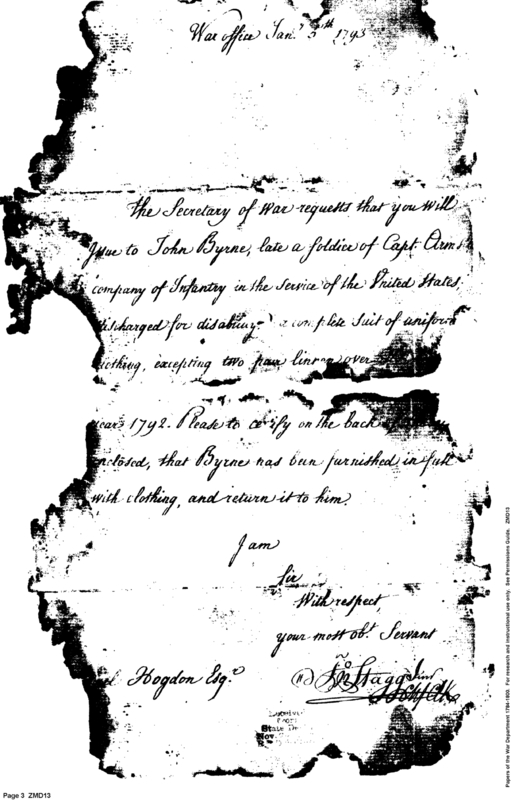 War office Jan.y 5th 1793
The Secretary of War requests that you will
Issue to John Byrne, late a soldier of Capt Arms
company of Infantry in the service of the United States,
discharged for disability a complete suit of uniform
clothing, excepting two pair linnen over
year 1792. Please to certify on the back
enclosed, that Byrne has been furnished in full
with clothing, and return it to him.
I am
Sir
With respect,
your most obt. Servant
Hogdon Esqr.
Jno Stagg Junr
Received
From
State De
Nov.
Page 3 ZMD13
Papers of the War Department 1784-1800. For research and instructional use only. See Permissions Guide. ZMD13